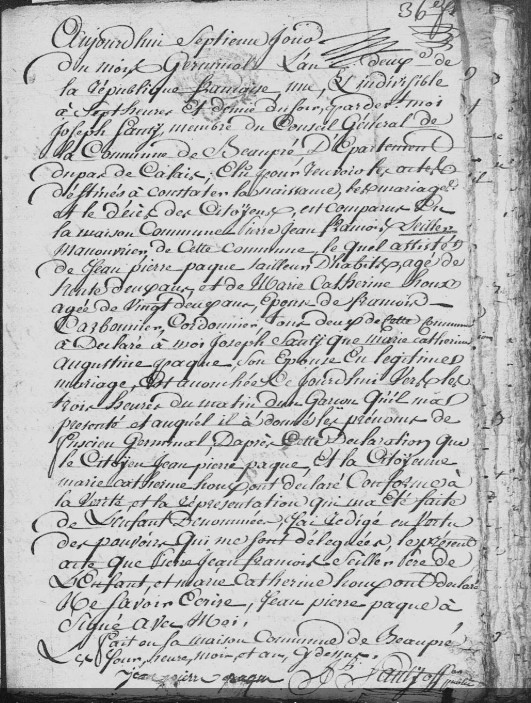 36
Aujourdhui Septieme Jour
du mois Germinal L'an deux.e de
la république francaise, une, Et indivisible
à Sept heures Et demie du soir, par devant moi
Joseph Sauty, membre du Conseil Général de
la Commune de Beaupré Département
du pas de Calais, Elu pour recevoir les actes
déstinés à constater la naissance, les mariages
et le décès des Citoyens, est comparu En
la maison Commune Pierre Jean francois Seillier
Manouvrier de Cette commune, le quel assisté
de Jean pierre paque tailleur D'habits, agé de
trente deux ans et de Marie Catherine houx
agée de Vingt deux ans, Epouse de francois
Carbonnier, Cordonnier, tous deux de Cette Commune
à Déclaré à moi Joseph Sauty que marie catherine
augustine paque, Son Epouse En legitime
mariage, Est accouchée Ce jourdhui Vers les
trois heures du matin d'un Garcon Qu'il m'a
presenté et auquel il à donné les prénoms de
Lucien Germinal, Daprès Cette Declaration que
le Citoyen Jean pierre paque, et la Citoyenne
marie catherine houx ont déclaré Conforme à
la Verité, et la répresentation qui m'a Eté faite
de L'enfant Denommé, J'ai rédigé en Vertu
des pouvoirs qui me sont délegués, le présent
acte que Pierre Jean francois Seillier Pere de
L'Enfant, et marie catherine houx ont declaré
Ne Savoir Ecrire, Jean pierre paque à
Signé avec Moi.
Fait en la maison Commune de Beaupré
Les Jour, heure, mois et an Cy dessus.
Jean pierre paque J. Sauty off
public